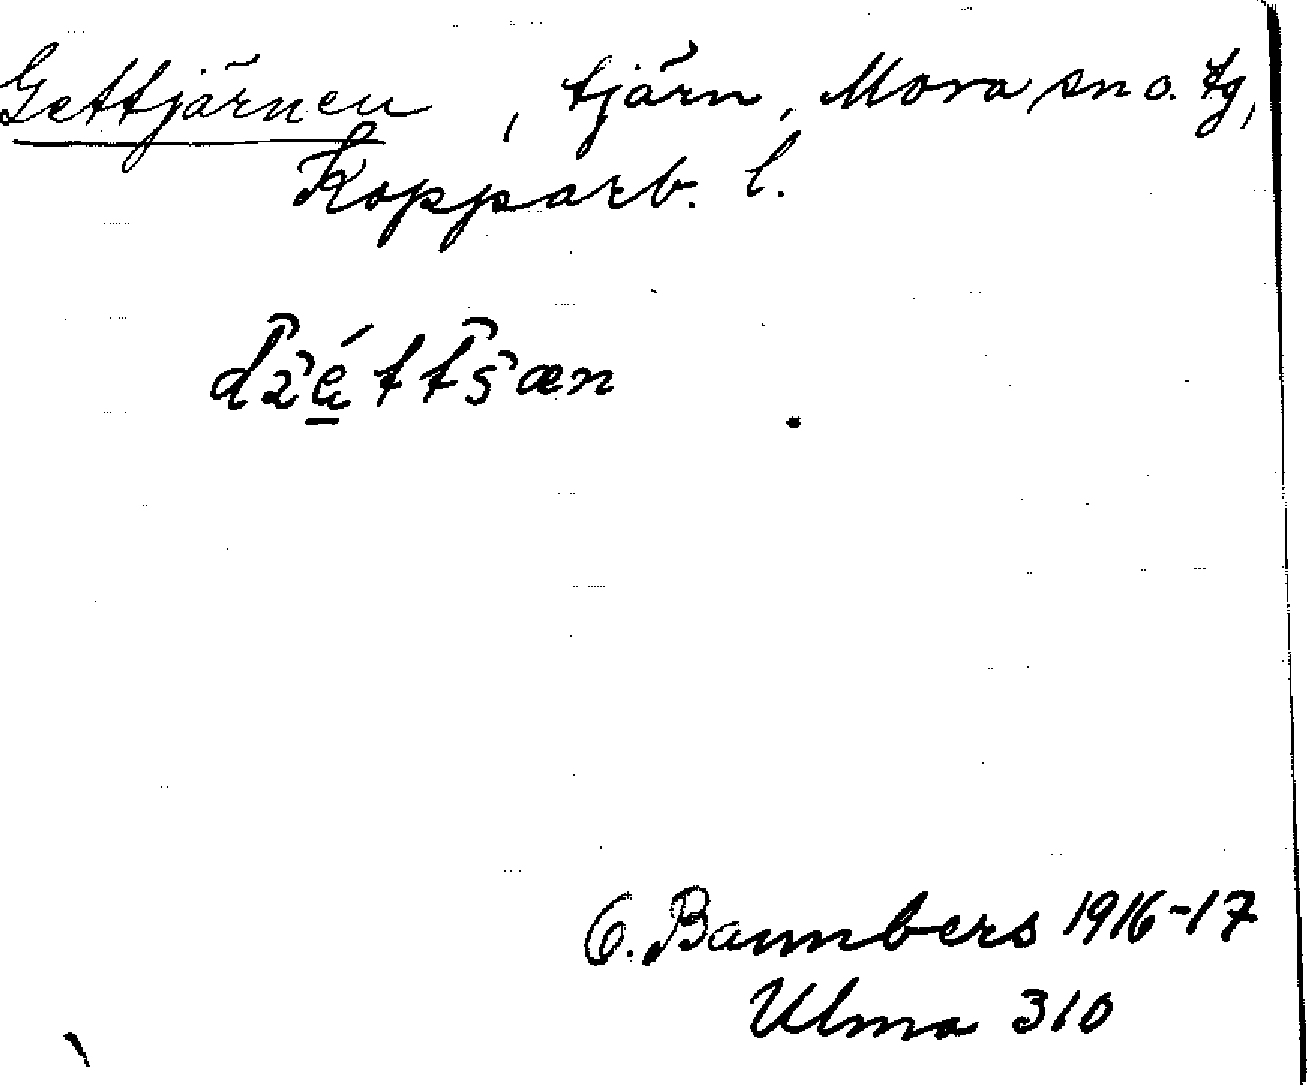 Gettjärnen, tjärn, Mora sn o. tg,
Kopparb. l.
O. Bannbers 1916-17
Ulma 310